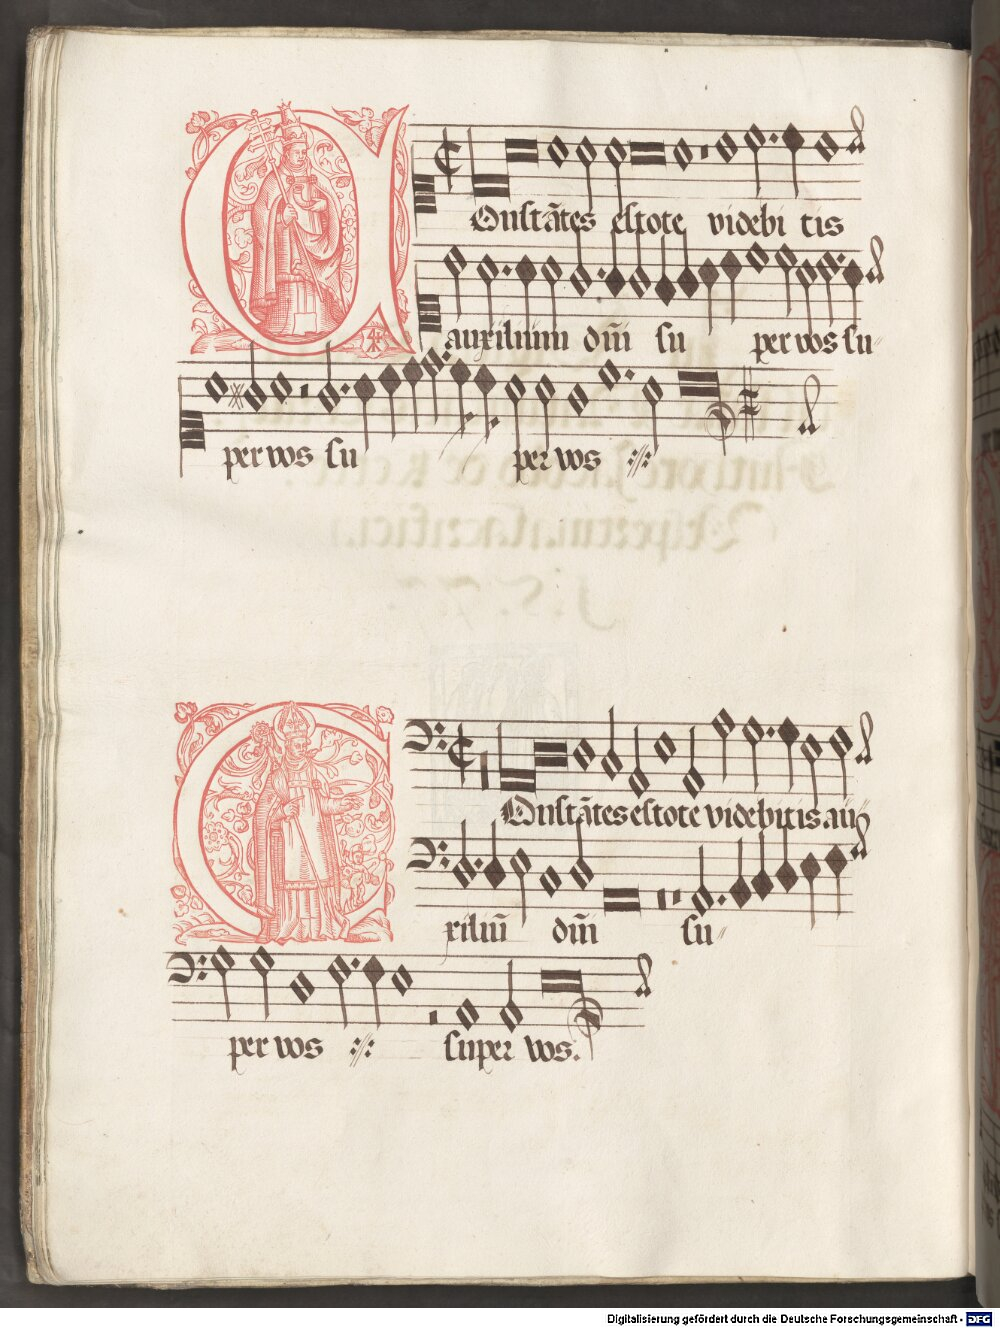 Constātes estote videbi tis
auxilium dm̄ su per vos su
per vos su per vos ://:
Constātes estote videbitis au
xiliū dm̄ su
per vos ://: super vos.
Digitalisierung gefördert durch die Deutsche Forschungsgemeinschaft - DFG